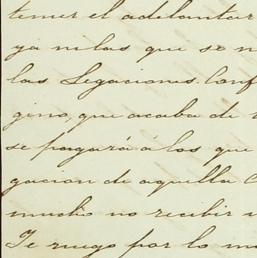 tener el adelantar
ya ni las que se n
las Legaciones. Conf
gino, que acaba de
se pagará á los que
gacion de aquella C
mucho no recibir
Te ruego por lo m